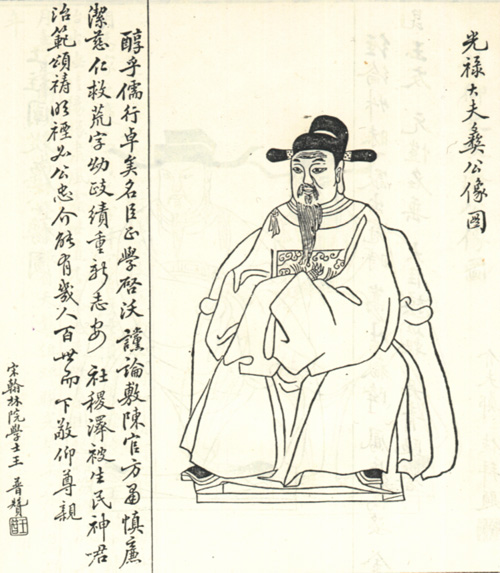 光禄大夫彝公像圖
醇乎儒行卓矣名臣正學啓沃讜論敷陳官方慎廉
潔慈仁救荒字幼政績重新志安 社稷澤被生民神君
治範頌禱明禋如公忠介能有幾人百世而下敬仰尊親
宋翰林院學士王 普贊